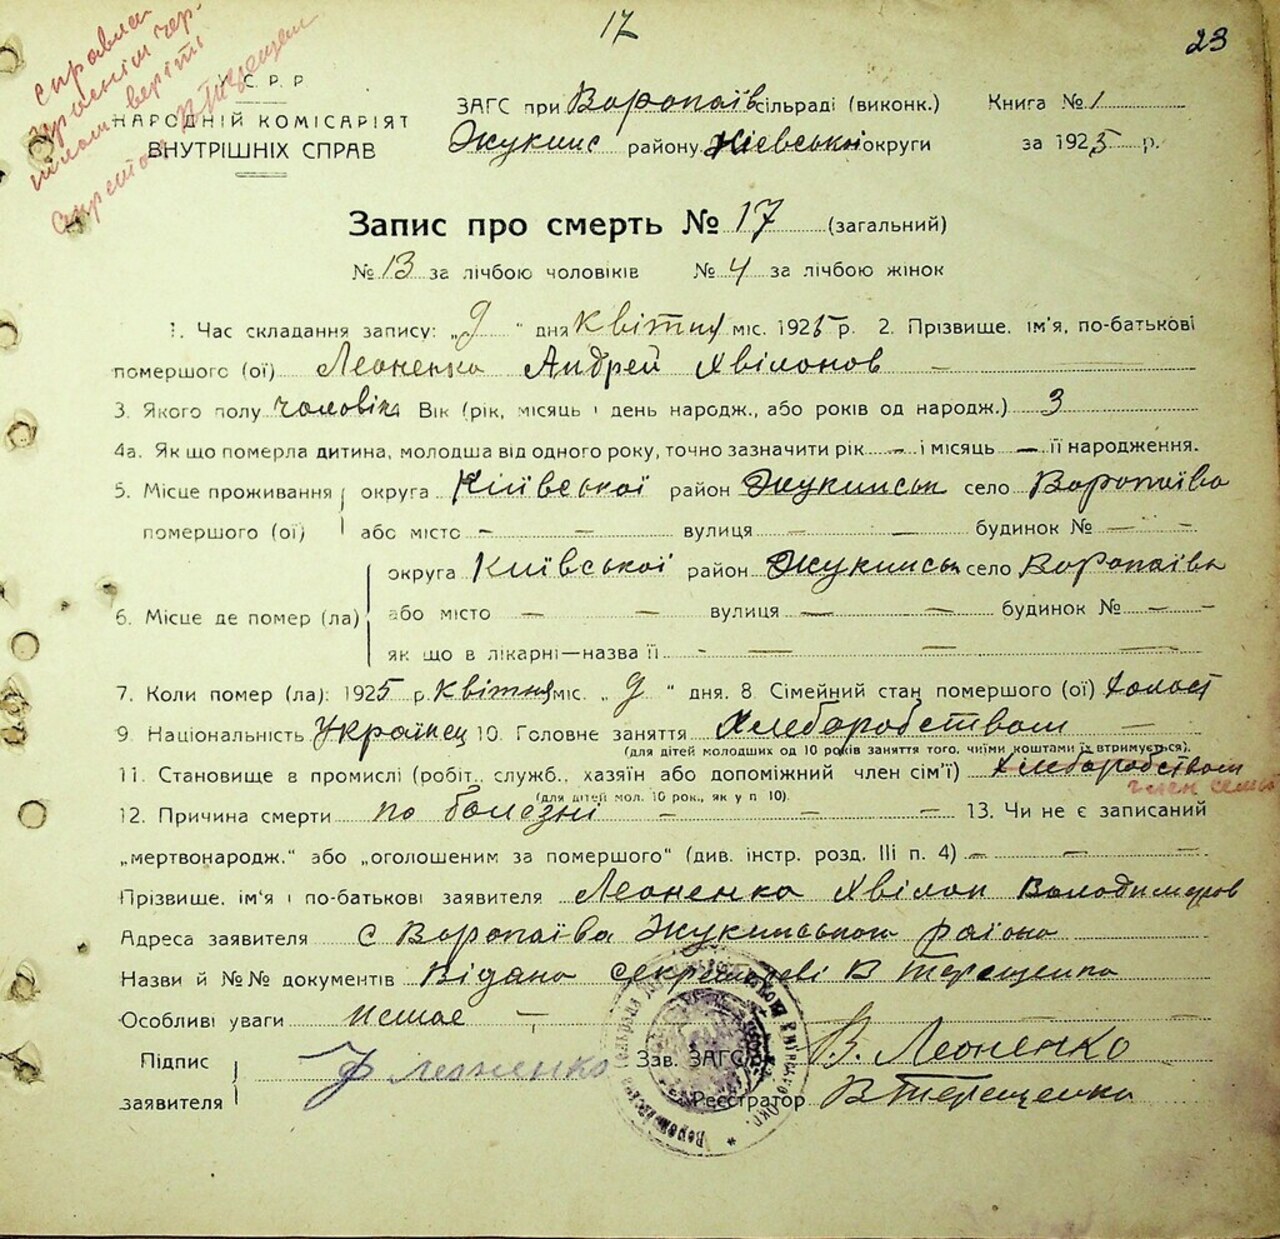 17
23
справлен
У.С.Р.Р
НАРОДНІЙ КОМІСАРІЯТ
ВНУТРІШНІХ СПРАВ
ЗАГС при Воропаїв сільраді (виконк.)
Жукинс району Київської округи
Книга № 1
за 1925 р.
Запис про смерть № 17 (загальний)
№ 13 за лічбою чоловіків № 4 за лічбою жінок
1. Час складання запису: „9" дня квітня міс. 1925 р. 2. Прізвище, ім'я, по-батькові
помершого (ої) Леоненко Андрей Хвілонов —
3. Якого полу чоловік Вік (рік, місяць і день народж., або років од народж.) 3
4а. Як що померла дитина, молодша від одного року, точно зазначити рік — і місяць — її народження.
5. Місце проживання округа Київської район Жукинськ село Воропаїво
помершого (ої) або місто — — вулиця — — будинок № — —
округа Київської район Жукинськ село Воропаїво
6. Місце де помер (ла) або місто — — вулиця — — будинок № — —
як що в лікарні—назва її - — — —
7. Коли помер (ла): 1925 р. квітня міс. „9" дня. 8. Сімейний стан помершого (ої) холост
9. Національність Українец 10. Головне заняття Хлеборобством —
(для дітей молодших од 10 років заняття того, чиїми коштами їх втримується).
11. Становище в промислі (робіт., служб., хазяїн або допоміжний член сім'ї) Хлеборобством
член семьї
(для дітей мол. 10 рок., як у п 10).
12. Причина смерти по болезні — — — 13. Чи не є записаний
„мертвонародж." або „оголошеним за помершого" (див. інстр. розд. III п. 4) — — —
Прізвище, ім'я і по-батькові заявителя Леоненко Хвілон Володимиров
Адреса заявителя с Воропаїва Жукинського району
Назви й №№ документів Відано секретареві В Терещенко
Особливі уваги немає —
Підпис
заявителя Ф леоненко
Зав. ЗАГС'ом В. Леоненко
Реєстратор В Терещенко